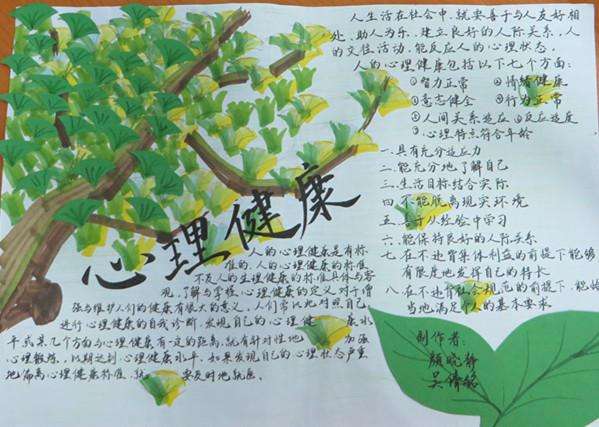 人生活在社会中,就要善于与人友好相
处,助人为乐,建立良好的人际关系,人
的交往活动,能反应人的心理状态。
人的心理健康包括以下七个方面:
①智力正常 ②情绪健康
③意志健全 ④行为正常
⑤人间关系适应 ⑥反应适度
⑦心理特点符合年龄
一.具有充分适应力
二.能充分地了解自己
三.生活目标结合实际
四.不能脱离现实环境
五.善于从经验中学习
六.能保持良好的人际关系
七.在不违背集体利益的前提下能够
有限度地发挥自己的特长
八.在不违背社会规范的前提下,能够
当地满足个人的基本要求
心理健康
人的心理健康是有标
准的.人的心理健康的标准
不及人的生理健康的标准具体与客
观,了解与掌握心理健康的定义对于增
强与维护人们的健康有很大的意义,人们常以此对照自己,
进行心理健康的自我诊断,发现自己的心理健康水
平或某几个方面与心理健康有一定的距离,就有针对性地加强
心理锻炼,以期达到心理健康水平.如果发现自己的心理状态严重
地偏离心理健康标准,就要及时地就医。
制作者:
颜晓静
吴倩